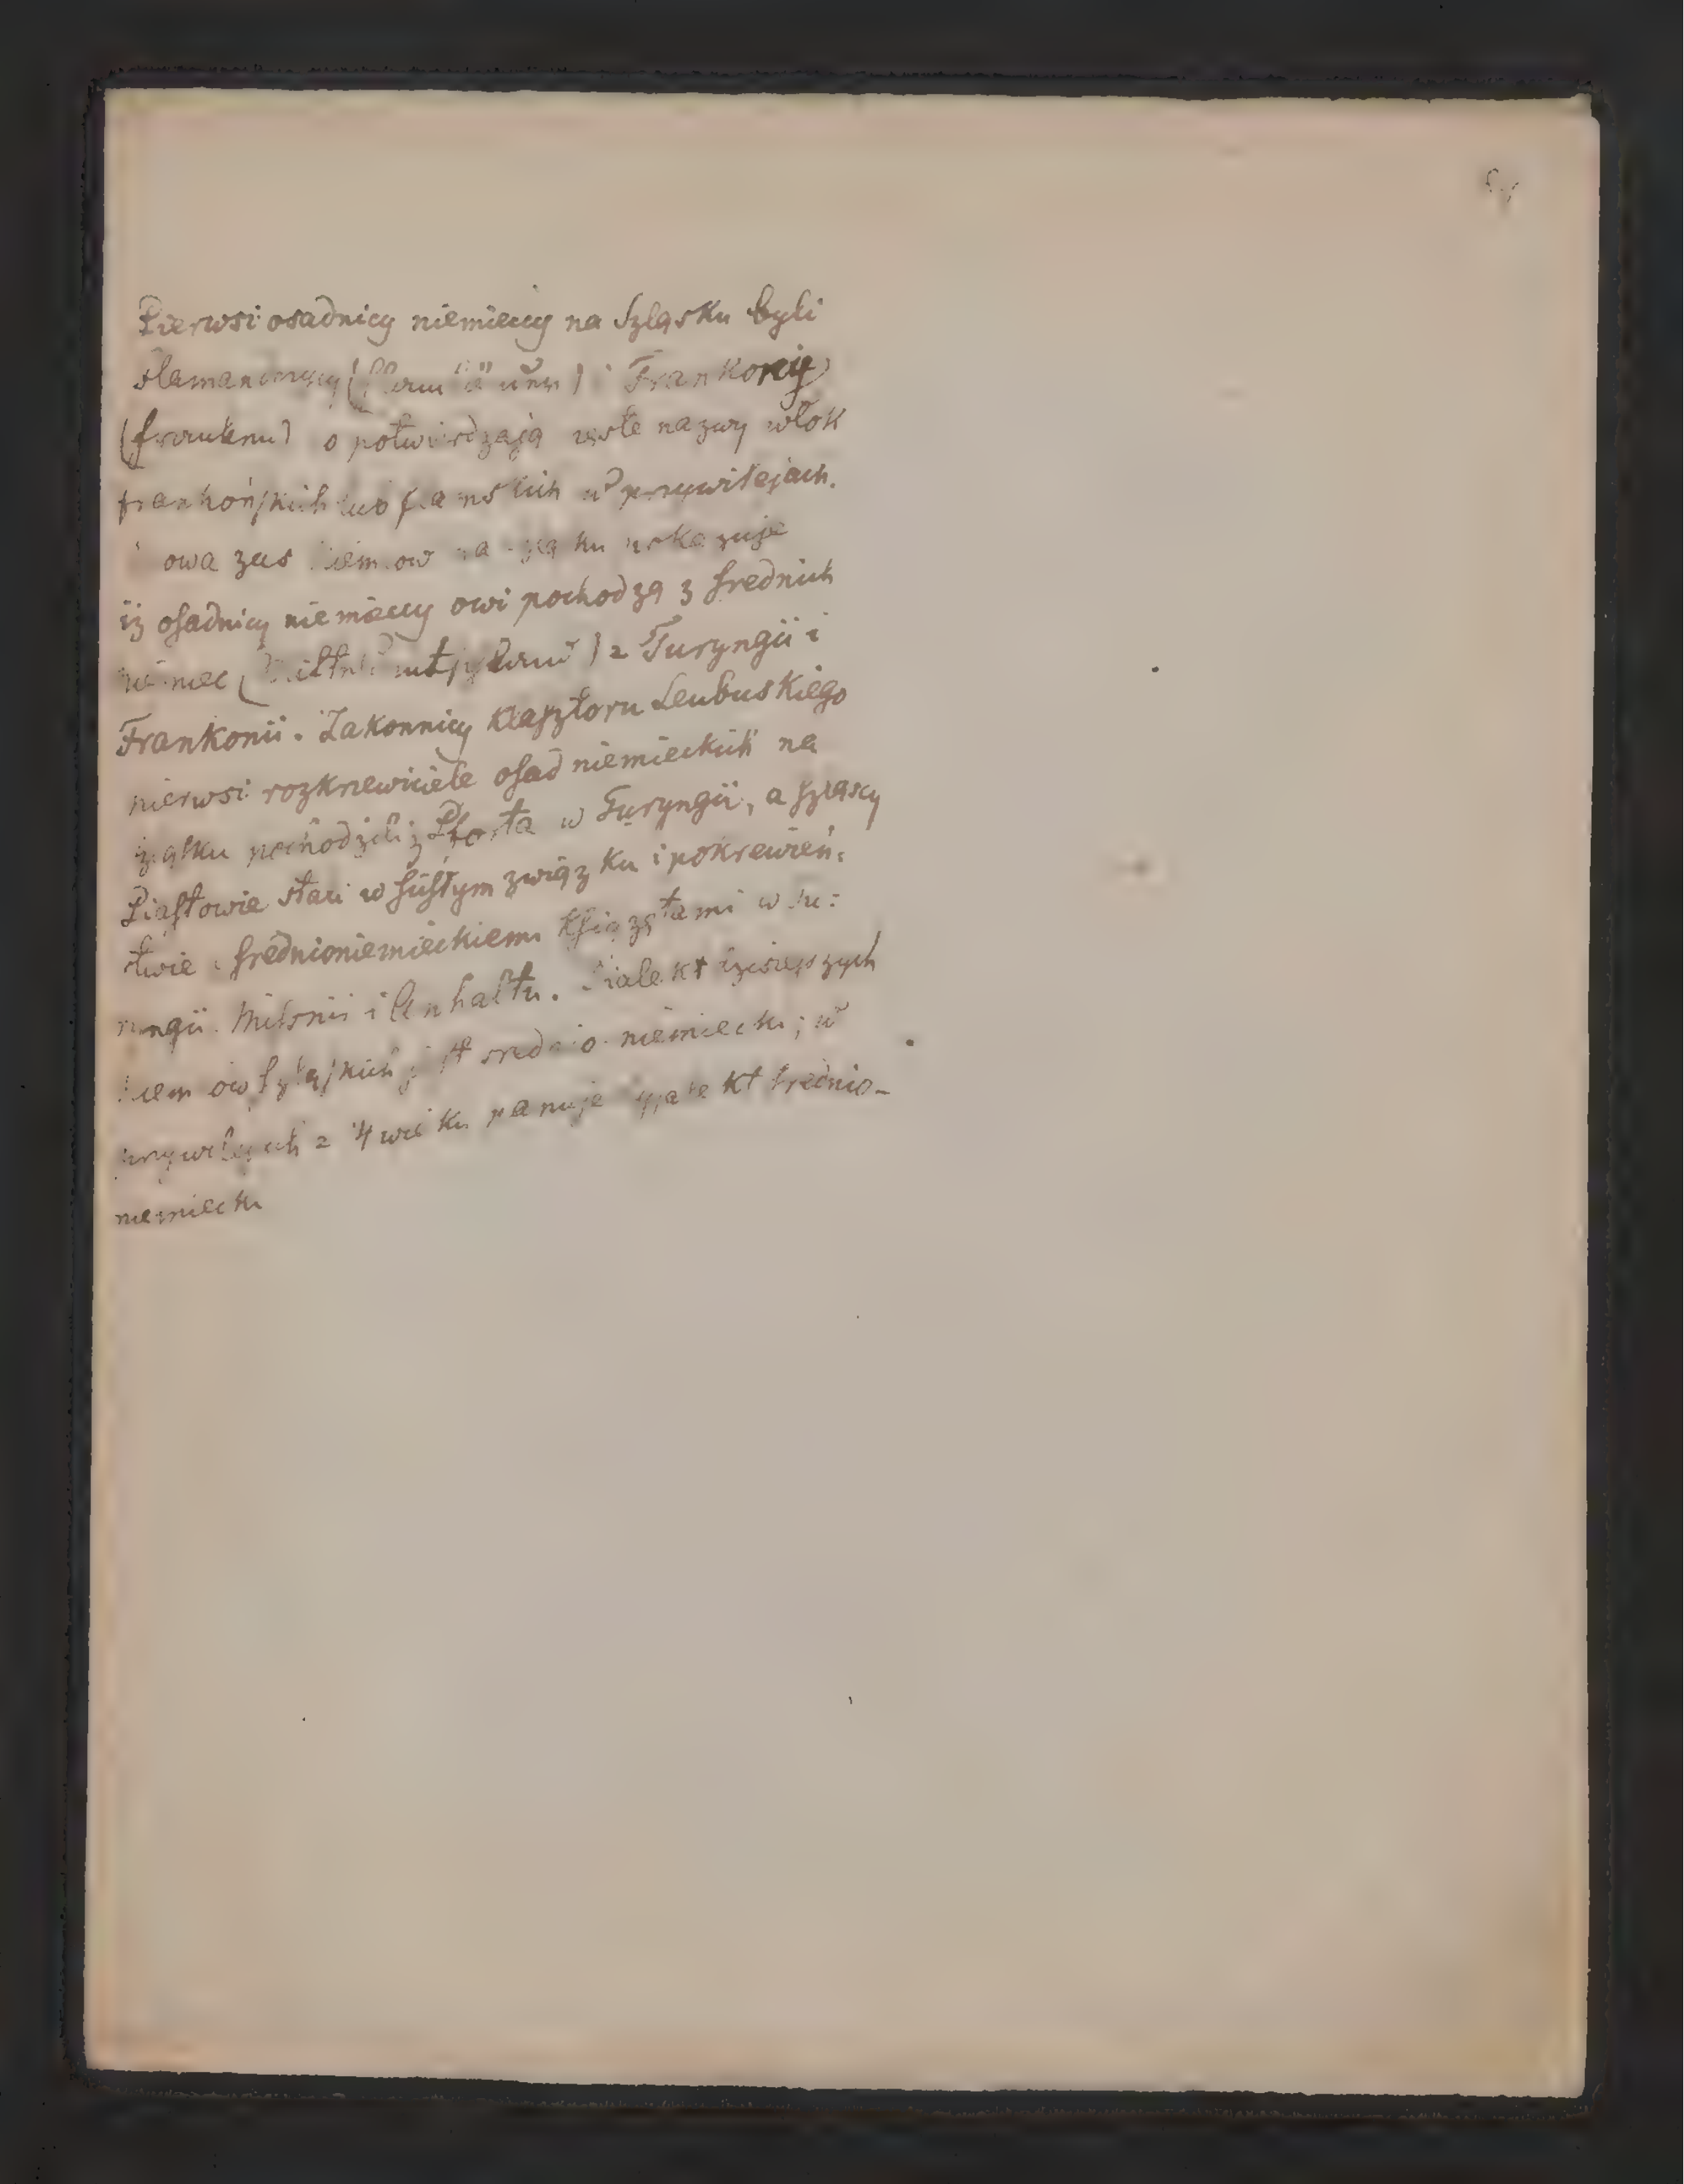 Pierwsi osadnicy niemieccy na Szląsku byli
Flamandczycy i Frankonię
(franken) potwierdzają nazwy włok
frankońskich lub flamskich w przywilejach.
owa zas Niemców na ku
iż osadnicy niemieccy owi pochodzą z średnich
Niemiec z Turyngii i
Frankonii. Zakonnicy klasztoru Leubuskiego
pierwsi rozkrzewiciele osad niemieckich na
Szląsku pochodzili z Pforta w Turyngii, a szląscy
Piastowie stali w ścisłym związku i pokrewień:
stwie z średnioniemieckiemi książętami w Tu:
ryngii. Miśnii i Anhaltu. Dialekt dzisiejszych
Niemców szląskich jest średnio-niemiecki; w
przywilejach z 14 wieku panuje dyalekt średnio-
niemiecki